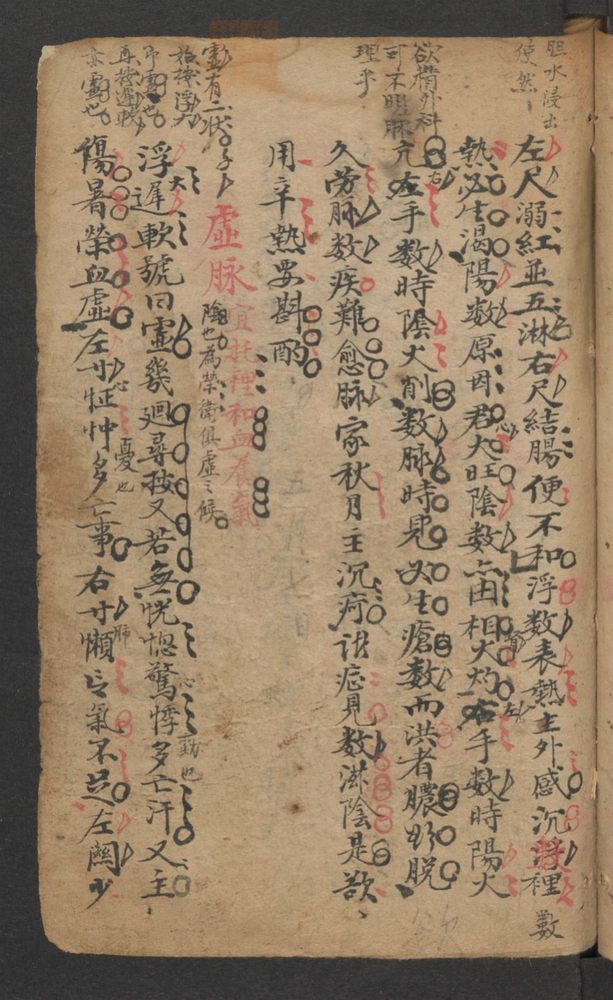 胆水浸出
使然
左尺溺紅並五淋右尺結腸便不和浮数表熱主外感沉数裡
熱必生渴陽数原因君火旺陰数亦由相火灼右手数時陽火
欲精外科
可不明脉
理乎
亢左手数時陰火削数脉時見必生瘡数而洪者膿
久劳脉数疾難愈脉家秋月主沉疴諸症見数滋陰是欲
用辛熱要斟酌
虛脉宜托裡和血養氣
陰也為榮衛俱虛之候
虛有二状
按浮大
再按遲軟
亦虛也
浮遲軟號曰虛幾廻尋按又若無恍惚驚悸多亡汗又主
傷暑榮血虛左寸怔忡多亡事右寸懶言氣不足左關少